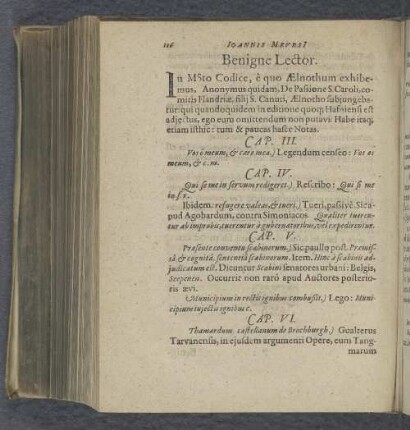 116 IOANNIS MEVRSI
Benigne Lector.
In Msto Codice, è quo Ælnothum exhibe-
mus, Anonymus quidam, De Passione S. Caroli, co-
mitis Flandriæ, filij S. Canuti, Ælnotho subjungeba-
tur: qui quandoquidem in editione quoq; Hafniensi est
adjectus, ego eum omittendum non putavi. Habe itaq;
etiam isthic: tum & paucas hasce Notas.
CAP. III.
Vos meum, & caro mea.) Legendum censeo: Vos os
meum, & c. m.
CAP. IV.
Qui se me in servum redigeret.) Rescribo: Qui si me
in s r.
Ibidem. refugere valeat, & tueri.) Tueri, passivè. Sic a-
pud Agobardum, contra Simoniacos. Qualiter tueren-
tur ab improbis, aut eruentur à gubernatoribus, vel expedirentur.
CAP. V.
Præsente conventu scabinorum.) Sic paullo post. Præmis-
sâ & cognitâ sententiâ scabinorum. Item. Hinc à scabinis ad-
judicatum est. Dicuntur Scabini senatores urbani: Belgis,
Scepenen. Occurrit non rarò apud Auctores posterio-
ris ævi.
Municipium in rectis ignibus combussit.) Lego: Muni-
cipium injectis ignibus c.
CAP. VI.
Thamardum castellanum de Brochburgh.) Gualterus
Tarvanensis, in ejusdem argumenti Opere, eum Tang-
marum